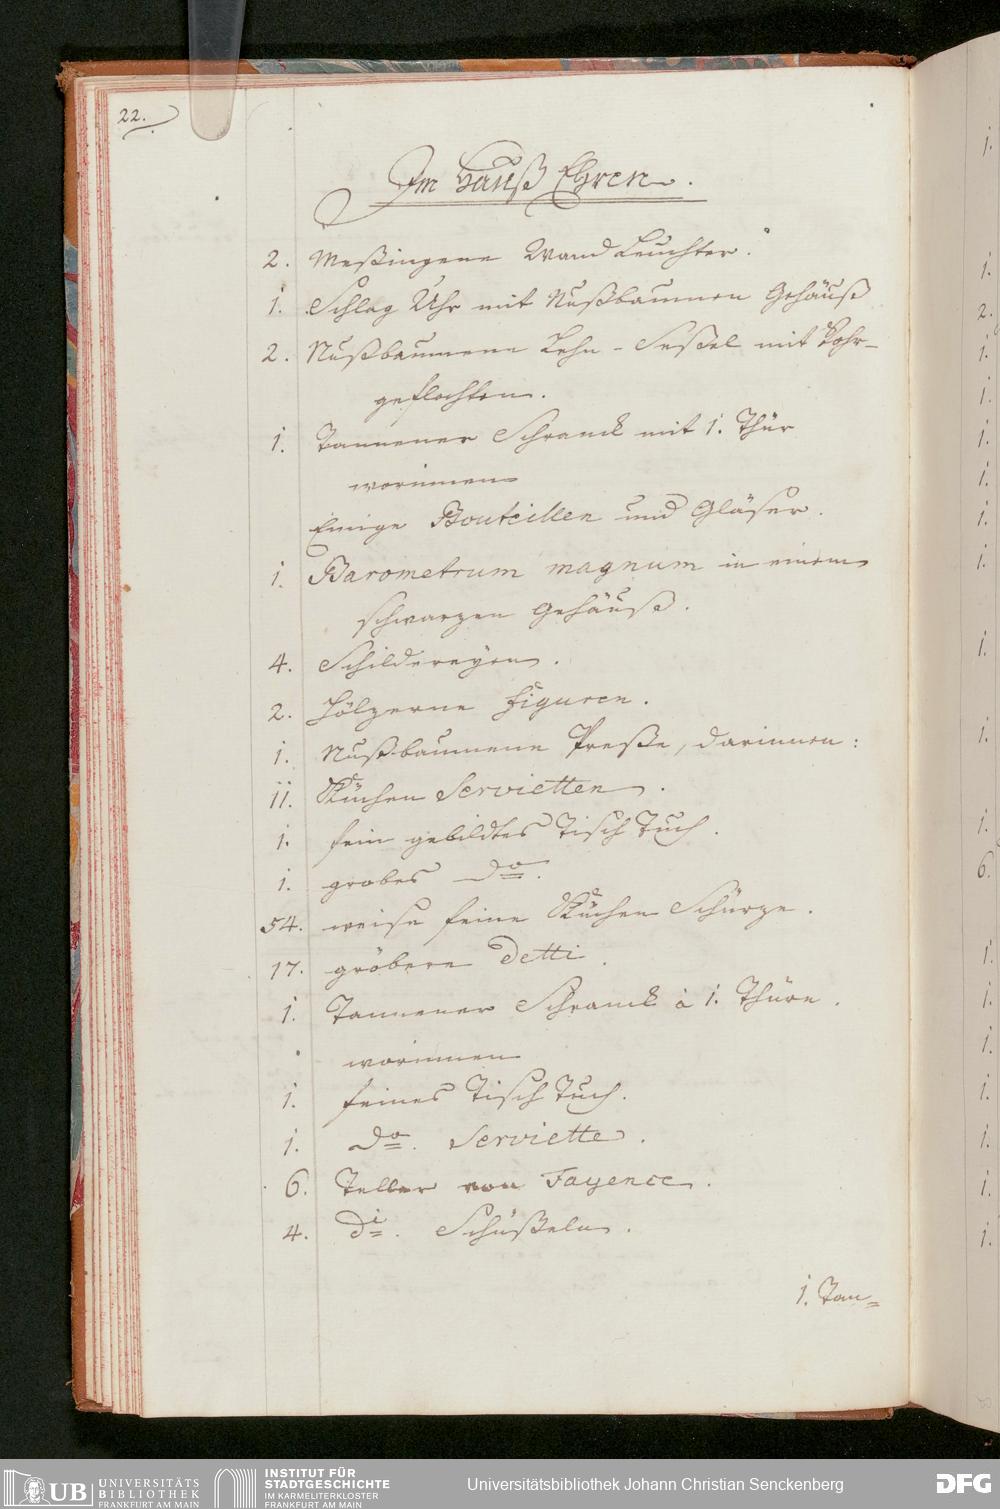 22.
Im Hauß Ehren.
2. Meßingene Wand Leuchter.
1. Schlag Uhr mit Nußbaumen Gehäuß
2. Nußbaumene Lehn-Seßel mit Rohr-
geflochten.
1. Tannener Schranck mit 1. Thür
worinnen
Einige Bouteillen und Gläser.
1. Barometrum magnum in einem
schwarzen Gehäuß.
4. Schildereyen.
2. Hölzerne Figuren.
1. Nußbaumene Preße, darinnen:
11. Küchen Servietten.
1. fein gebildtes Tisch Tuch.
1. grobes Do.
54. weise feine Küchen Schürze.
17. gröbere Detti.
1. Tannener Schranck à 1. Thüre.
worinnen
1. feines Tisch Tuch.
1. Do. Serviette.
6. Teller von Fayence.
4. Di. Schüßeln.
1. Tan=
1.
1.
2.
1.
1.
1.
1.
1.
1.
1.
1.
1.
6.
1.
1.
1.
1.
1.
1.
1.
UB UNIVERSITÄTS
BIBLIOTHEK
FRANKFURT AM MAIN
INSTITUT FÜR
STADTGESCHICHTE
IM KARMELITERKLOSTER
FRANKFURT AM MAIN
Universitätsbibliothek Johann Christian Senckenberg
DFG